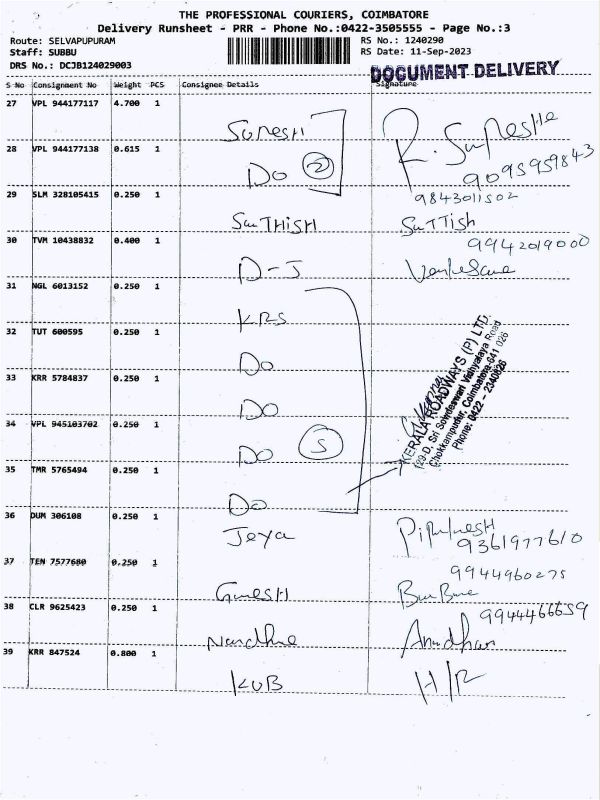 THE PROFESSIONAL COURIERS, COIMBATORE
Delivery Runsheet - PRR - Phone No.:0422-3505555 - Page No.:3
Route: SELVAPUPURAM RS No.: 1240290
Staff: SUBBU RS Date: 11-Sep-2023
DRS No.: DCJB124029003 DOCUMENT DELIVERY
S No Consignment No Weight PCS Consignee Details Signature
27 VPL 944177117 4.700 1
Suresh R. Suresh
28 VPL 944177138 0.615 1 9095959843
Do 2
29 SLM 328105415 0.250 1 9843011502
SuTHISH SuTTish
30 TVM 10438832 0.400 1 9942019000
D-J
31 NGL 6013152 0.250 1
KRS
32 TUT 600595 0.250 1
Do
33 KRR 5784837 0.250 1
Do
34 VPL 945103702 0.250 1
Do 5
KERALA ROADWAYS (P) LTD.
129-D, Sri Sowdeswari Vidhyalaya Road
Chokkampudur, Coimbatore-641 026
Phone: 0422 - 2340826
35 TMR 5765494 0.250 1
Do
36 DUM 306108 0.250 1
Jeya 9361977610
37 TEN 7577680 0.250 1 9944960275
Ganesh
38 CLR 9625423 0.250 1 9944466659
Nandhu Anandhan
39 KRR 847524 0.800 1
KUB H/R